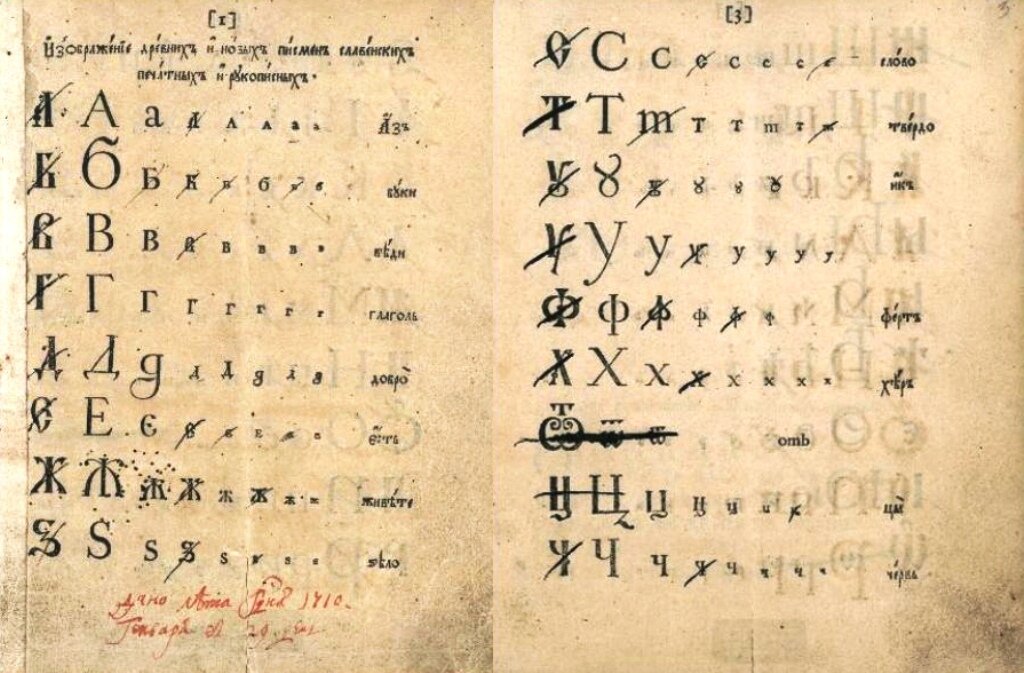 [1]
Изображенїе древнихъ и новыхъ писменъ славенскихъ
печатныхъ и рукописныхъ.
А А а а а а а а азъ
Б Б Б Б Б б Б Б буки
В В В В В В В В вѣди
Г Г Г Г Г Г Г Г глаголь
Д Д д д Д д д д добро
Є Е є є е є є є есть
Ж Ж Ж Ж ж ж ж ж живѣте
Ѕ Ѕ ѕ ѕ ѕ ѕ ѕ ѕ ѕѣло
Дано лѣта Гднѧ 1710.
Генваря въ 29 день
[3]
С С с с с с с с слово
Т Т т т т т т т твердо
Ꙋ Ꙋ ꙋ ꙋ ꙋ ꙋ икъ
У У у у у у у у
Ф ф ф ф ф ф фертъ
Х Х х х х х х х хѣръ
Ѿ ѿ ѿ отъ
Ц Ц ц ц ц ц ц цы
Ч Ч ч ч ч ч ч ч червь